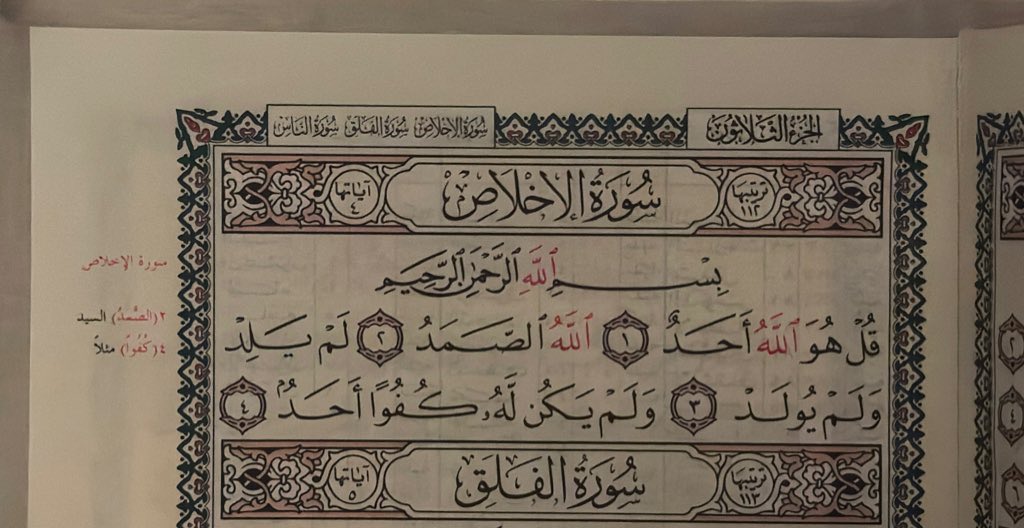 الجزء الثلاثون
سورة الإخلاص سورة الفلق سورة الناس
ترتيبها ١١٢
سُورَةُ الإِخْلَاصِ
آياتها ٤
بِسْمِ ٱللَّهِ ٱلرَّحْمَٰنِ ٱلرَّحِيمِ
قُلْ هُوَ ٱللَّهُ أَحَدٌ ١ ٱللَّهُ ٱلصَّمَدُ ٢ لَمْ يَلِدْ
وَلَمْ يُولَدْ ٣ وَلَمْ يَكُن لَّهُۥ كُفُوًا أَحَدٌۢ ٤
ترتيبها ١١٣
سُورَةُ الفَلَقِ
آياتها ٥
سورة الإخلاص
٢ (الصَّمَدُ) السيد
٤ (كُفُوًا) مثلاً
٢
٤
٦